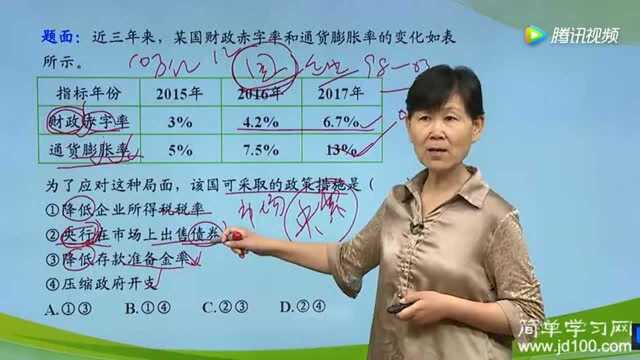 题面：近三年来，某国财政赤字率和通货膨胀率的变化如表
所示。
指标年份 2015年 2016年 2017年
财政赤字率 3% 4.2% 6.7%
通货膨胀率 5% 7.5% 13%
为了应对这种局面，该国可采取的政策措施是（
①降低企业所得税税率
②央行在市场上出售债券
③降低存款准备金率
④压缩政府开支
A.①③ B.①④ C.②③ D.②④
腾讯视频
简单学习网
www.jd100.com